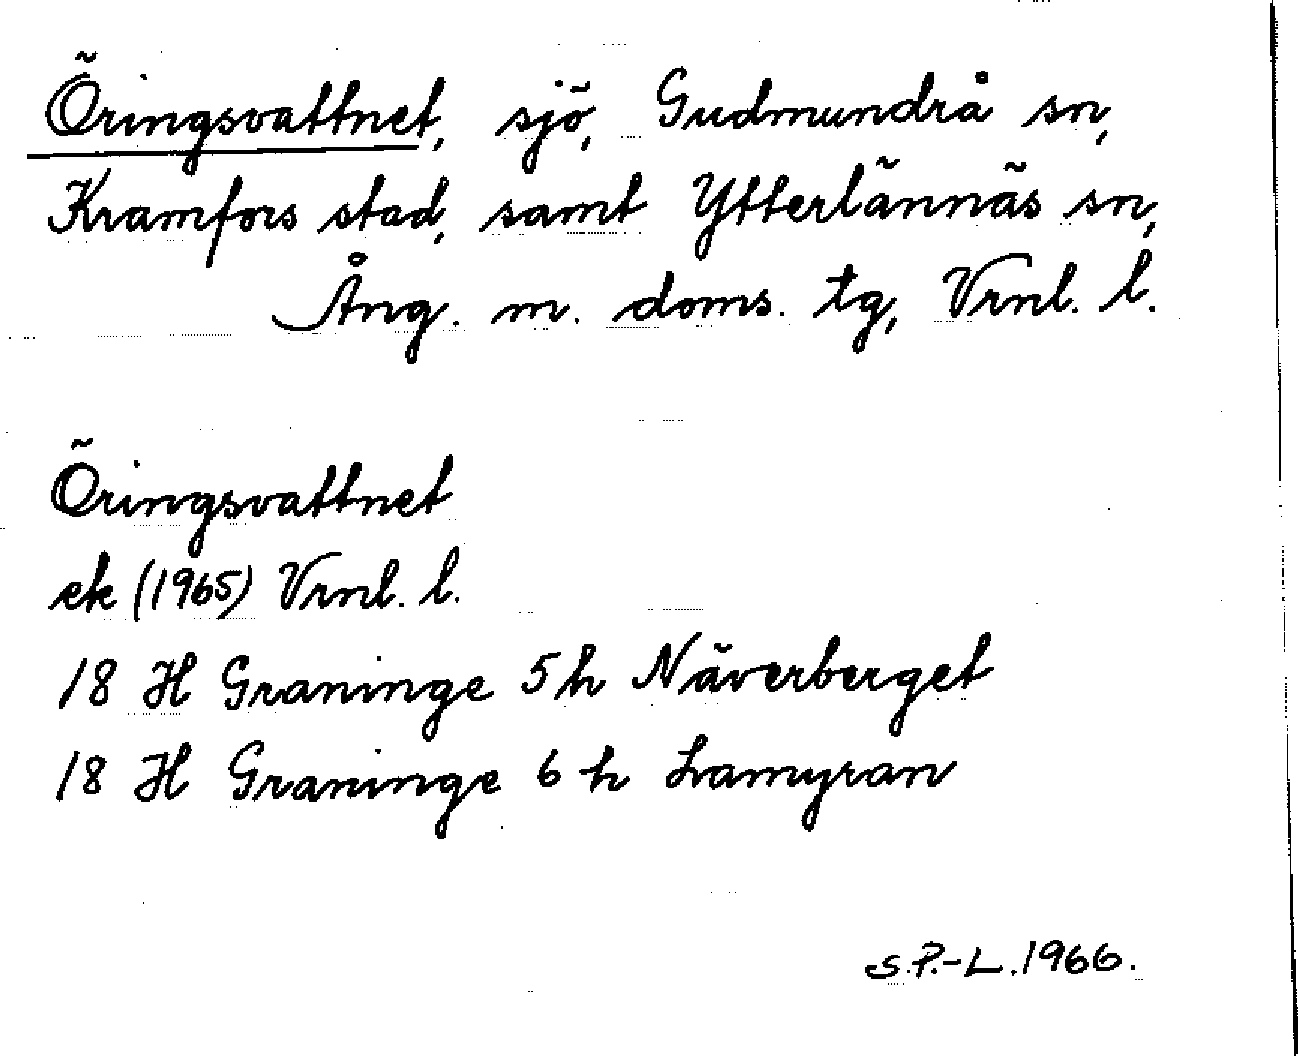 Öringsvattnet, sjö, Gudmundrå sn,
Kramfors stad, samt Ytterlännäs sn,
Ång. m. doms. tg, Vrnl. l.
Öringsvattnet
ek (1965) Vrnl. l.
18 H Graninge 5h Näverberget
18 H Graninge 6 h Lamyran
S.P.-L. 1966.